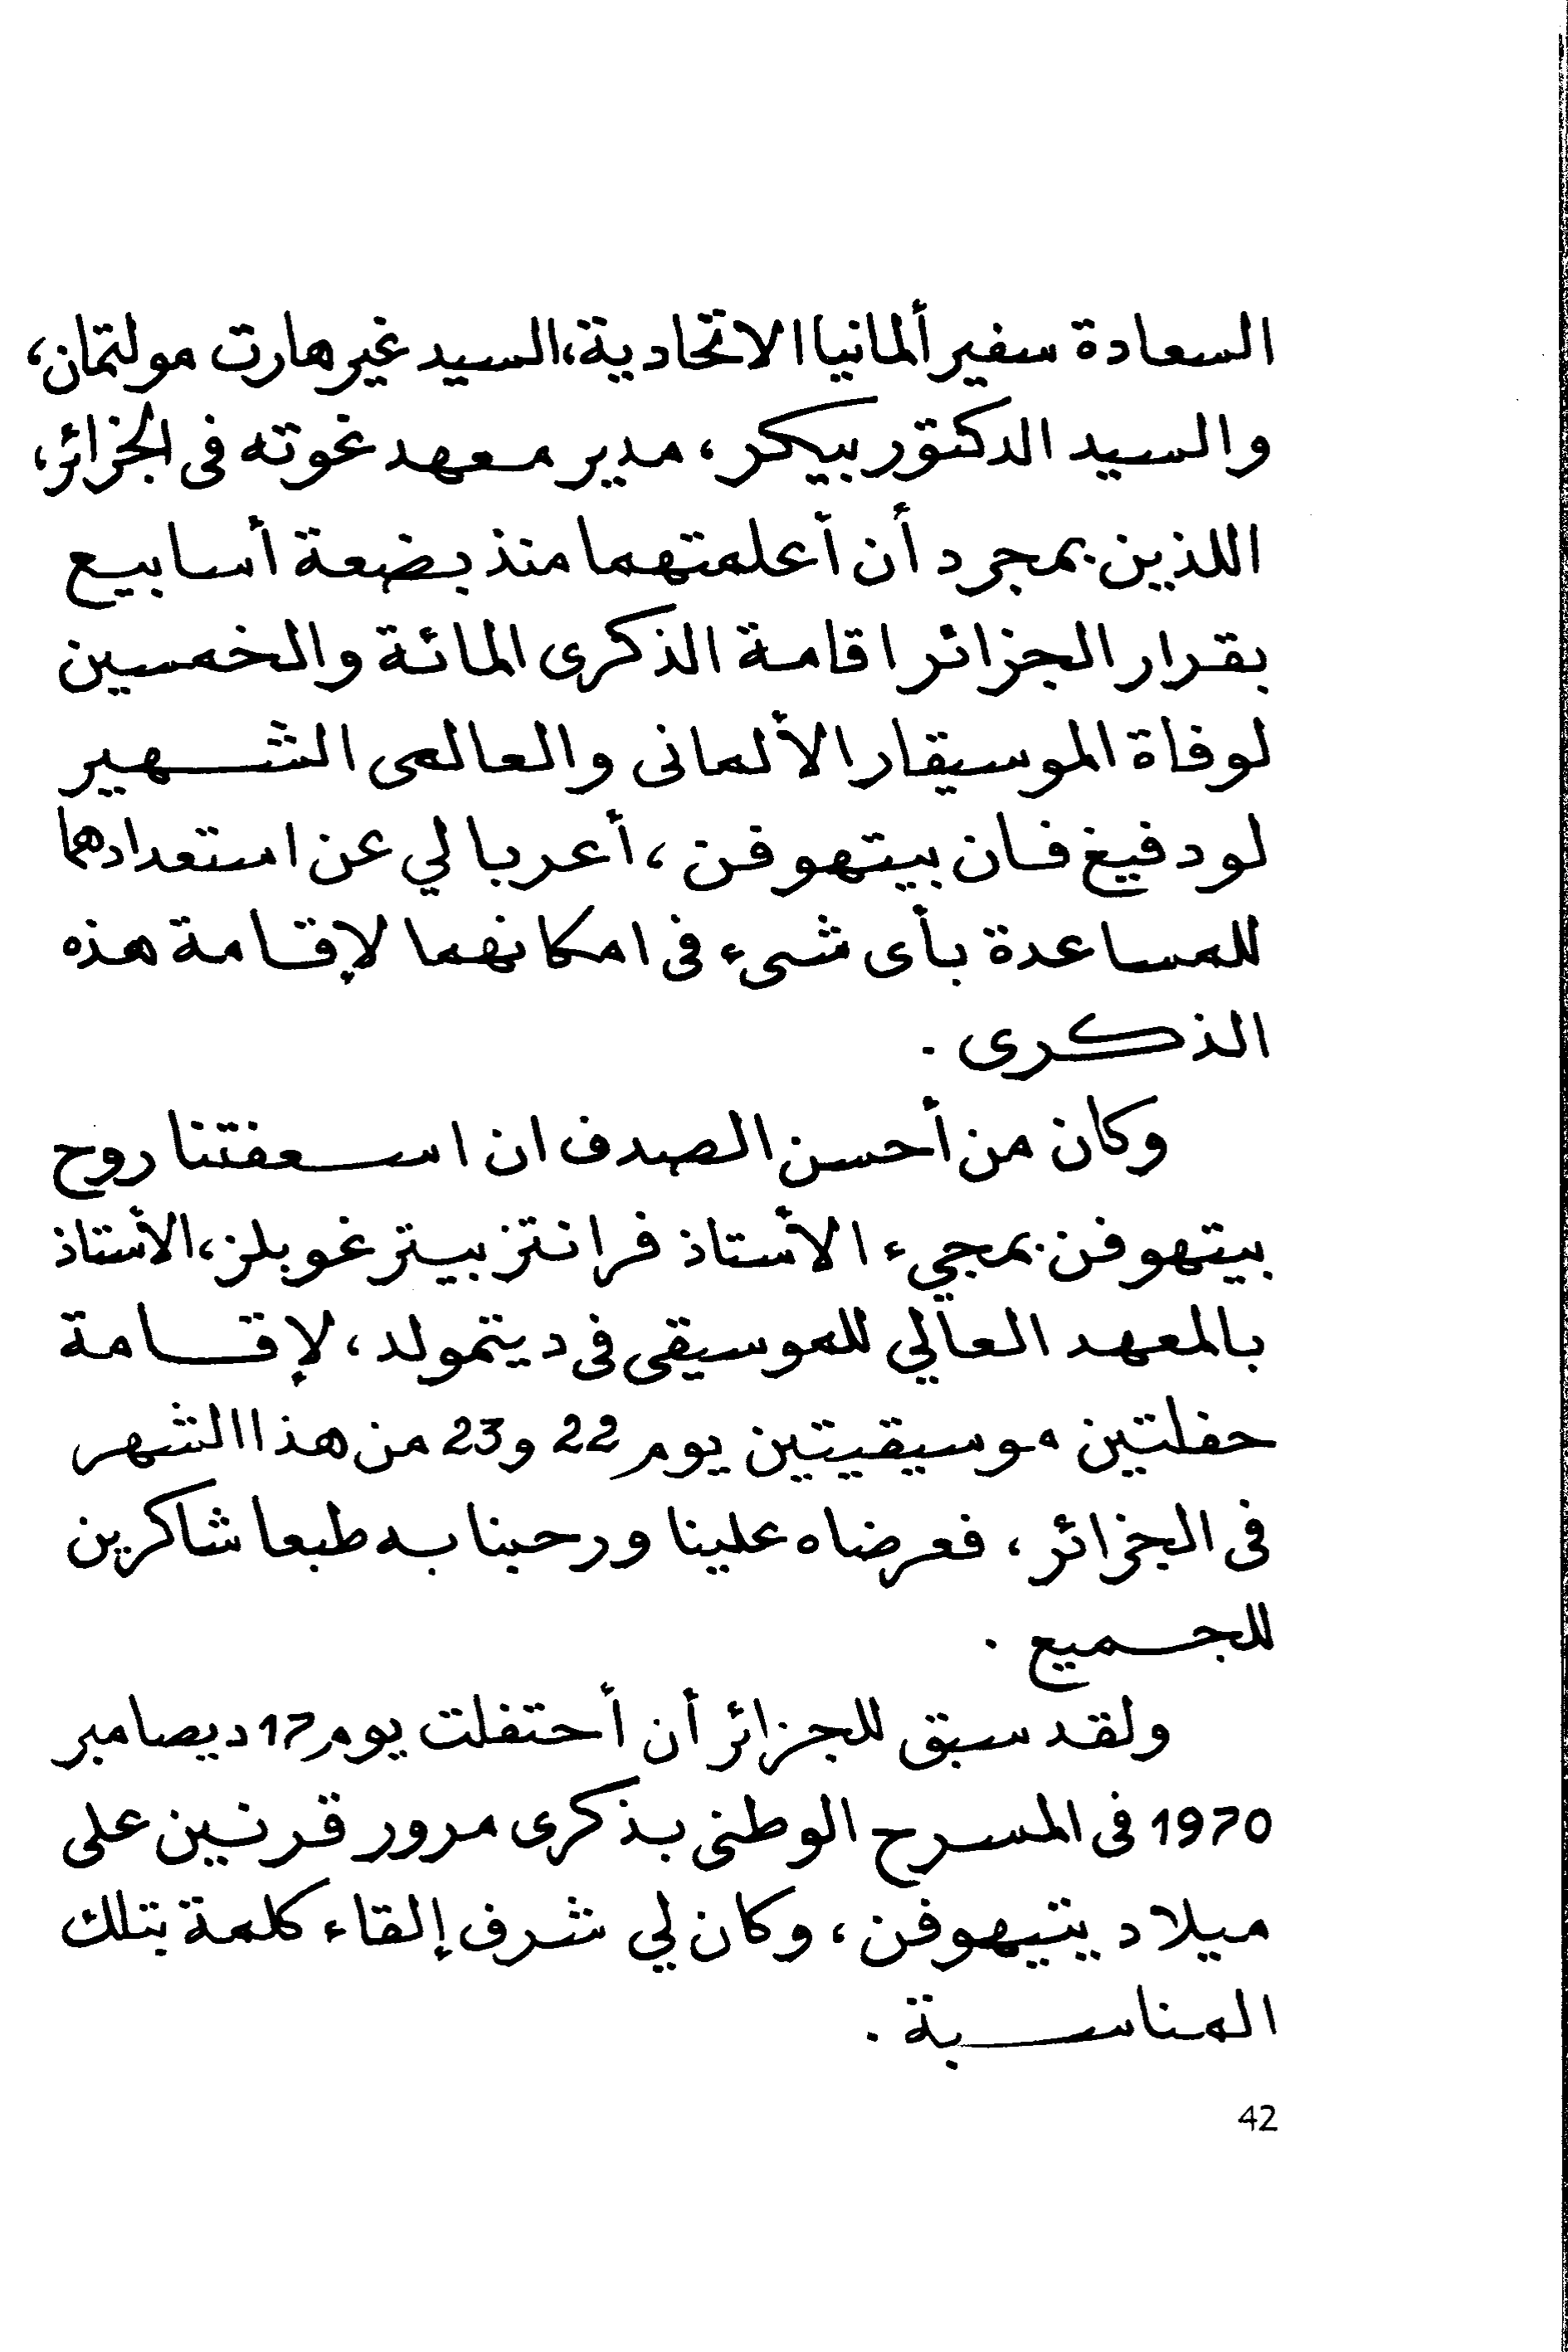 السعادة سفير ألمانيا الاتحادية، السيد غيرهارت مولتمان،
والسيد الدكتور بيكر، مدير معهد غوته فى الجزائر،
اللذين بمجرد أن أعلمتهما منذ بضعة أسابيع
بقرار الجزائر اقامة الذكرى المائة والخمسين
لوفاة الموسيقار الألمانى والعالمى الشهير
لودفيغ فان بيتهوفن، أعربا لي عن استعدادهما
للمساعدة بأى شىء فى امكانهما لإقامة هذه
الذكرى .
وكان من أحسن الصدف ان اسعفتنا روح
بيتهوفن بمجيء الأستاذ فرانتز بيتر غوبلز، الأستاذ
بالمعهد العالي للموسيقى فى ديتمولد، لإقامة
حفلتين موسيقيتين يوم 22 و23 من هذا الشهر
فى الجزائر، فعرضاه علينا ورحبنا به طبعا شاكرين
للجميع .
ولقد سبق للجزائر أن أحتفلت يوم 17 ديصامبر
1970 فى المسرح الوطنى بذكرى مرور قرنين على
ميلاد بتيهوفن، وكان لي شرف إلقاء كلمة بتلك
المناسبة .
42